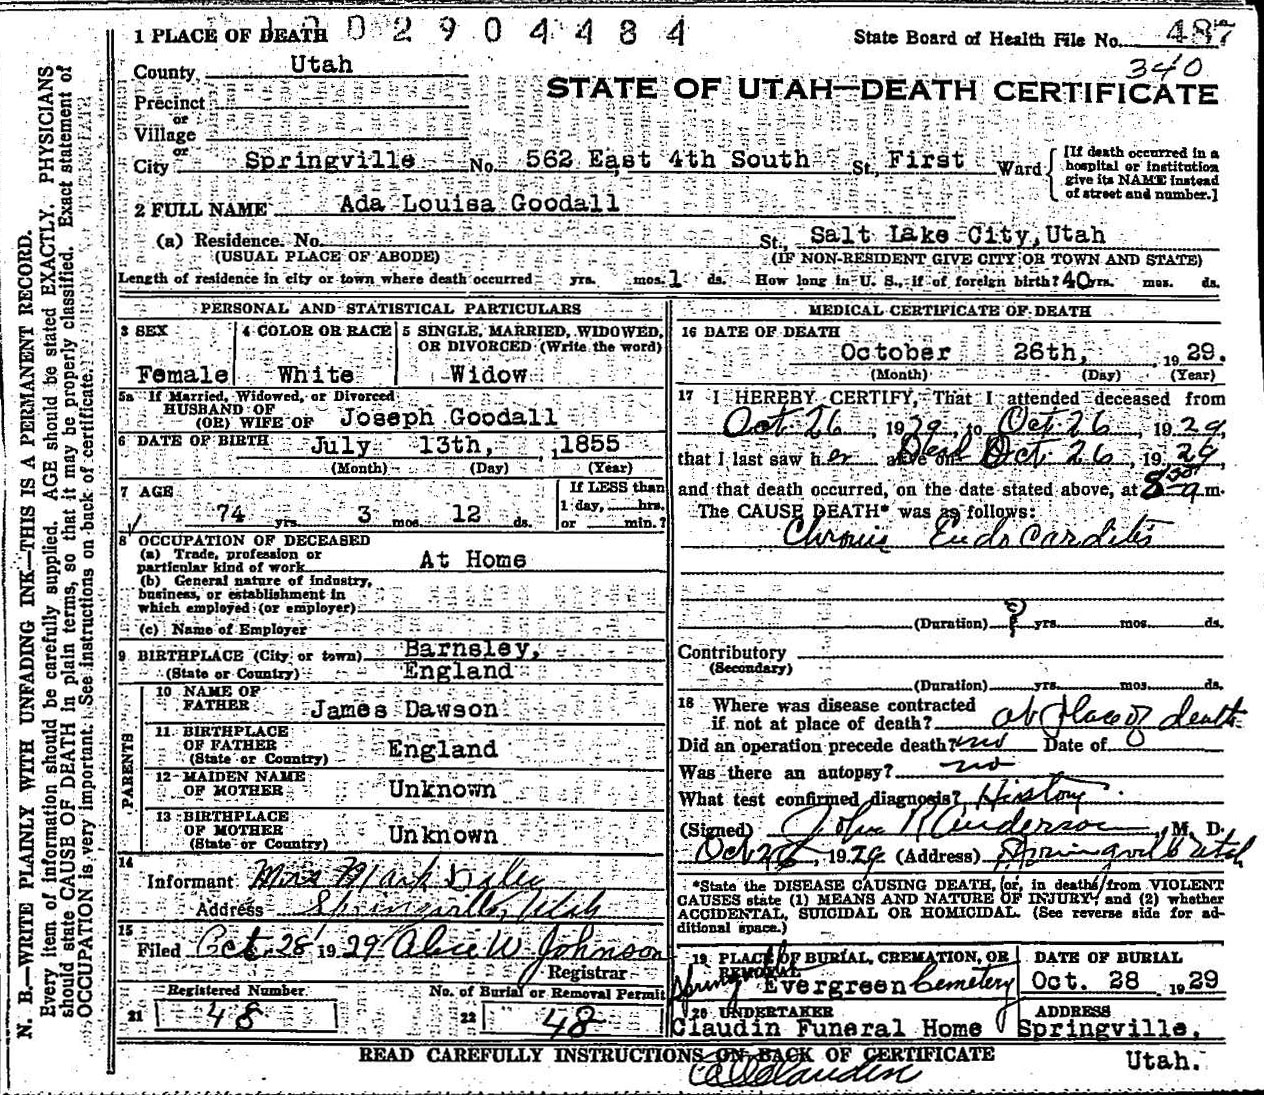 1 PLACE OF DEATH 0 2 9 0 4 4 8 4
State Board of Health File No. 487
340
County Utah
STATE OF UTAH—DEATH CERTIFICATE
Precinct
or
Village
or
City Springville No. 562 East 4th South St., First Ward
[If death occurred in a hospital or institution give its NAME instead of street and number.]
2 FULL NAME Ada Louisa Goodall
(a) Residence. No. St., Salt Lake City, Utah
(USUAL PLACE OF ABODE) (IF NON-RESIDENT GIVE CITY OR TOWN AND STATE)
Length of residence in city or town where death occurred yrs. mos. 1 ds. How long in U. S., if of foreign birth? 40 yrs. mos. ds.
PERSONAL AND STATISTICAL PARTICULARS
3 SEX
Female
4 COLOR OR RACE
White
5 SINGLE, MARRIED, WIDOWED, OR DIVORCED (Write the word)
Widow
5a If Married, Widowed, or Divorced
HUSBAND OF
(OR) WIFE OF Joseph Goodall
6 DATE OF BIRTH July 13th, 1855
(Month) (Day) (Year)
7 AGE
74 yrs. 3 mos. 12 ds.
If LESS than
1 day, hrs.
or min.?
8 OCCUPATION OF DECEASED
(a) Trade, profession or
particular kind of work At Home
(b) General nature of industry,
business, or establishment in
which employed (or employer)
(c) Name of Employer
9 BIRTHPLACE (City or town) Barnsley,
(State or Country) England
PARENTS
10 NAME OF
FATHER James Dawson
11 BIRTHPLACE
OF FATHER England
(State or Country)
12 MAIDEN NAME
OF MOTHER Unknown
13 BIRTHPLACE
OF MOTHER Unknown
(State or Country)
14
Informant Mrs Mark
Address Springville, Utah
15
Filed Oct. 28 1929 Alice W. Johnson
Registrar
Registered Number
21 48
No. of Burial or Removal Permit
22 48
MEDICAL CERTIFICATE OF DEATH
16 DATE OF DEATH
October 26th, 1929.
(Month) (Day) (Year)
17 I HEREBY CERTIFY, That I attended deceased from
Oct 26, 1929, to Oct 26, 1929,
that I last saw her alive on Dead Oct. 26, 1929,
and that death occurred, on the date stated above, at 8 30 a m.
The CAUSE DEATH* was as follows:
Chronic Endocarditis
(Duration) ? yrs. mos. ds.
Contributory
(Secondary)
(Duration) yrs. mos. ds.
18 Where was disease contracted
if not at place of death? at place of death
Did an operation precede death? no Date of
Was there an autopsy? no
What test confirmed diagnosis? History.
(Signed) John R Anderson, M. D.
Oct 26, 1929 (Address) Springville Utah
*State the DISEASE CAUSING DEATH, (or, in deaths from VIOLENT
CAUSES state (1) MEANS AND NATURE OF INJURY; and (2) whether
ACCIDENTAL, SUICIDAL OR HOMICIDAL. (See reverse side for additional space.)
19 PLACE OF BURIAL, CREMATION, OR
REMOVAL
Evergreen Cemetery
DATE OF BURIAL
Oct. 28 1929
20 UNDERTAKER
Claudin Funeral Home
ADDRESS
Springville,
Utah.
READ CAREFULLY INSTRUCTIONS ON BACK OF CERTIFICATE
N. B.—WRITE PLAINLY WITH UNFADING INK—THIS IS A PERMANENT RECORD.
Every item of information should be carefully supplied. AGE should be stated EXACTLY. PHYSICIANS
should state CAUSE OF DEATH in plain terms, so that it may be properly classified. Exact statement of
OCCUPATION is very important. See instructions on back of certificate.